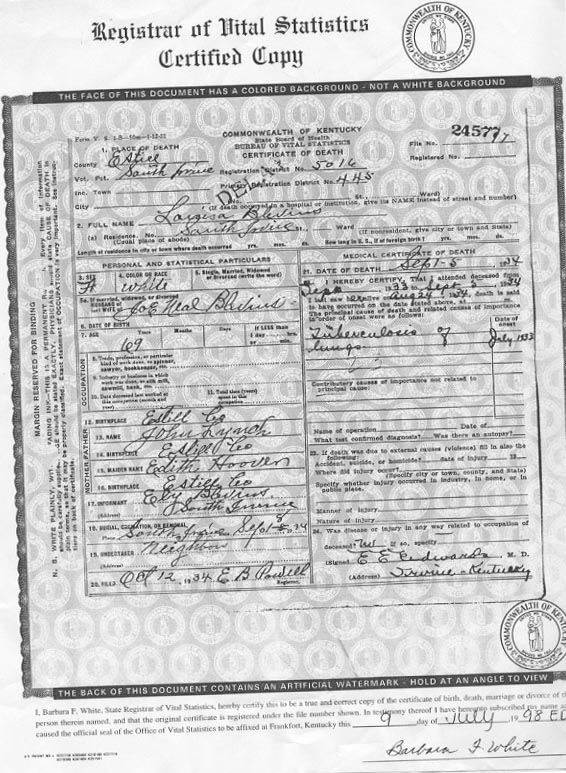 Registrar of Vital Statistics
Certified Copy
COMMONWEALTH OF KENTUCKY
THE FACE OF THIS DOCUMENT HAS A COLORED BACKGROUND - NOT A WHITE BACKGROUND
COMMONWEALTH OF KENTUCKY
State Board of Health
BUREAU OF VITAL STATISTICS
CERTIFICATE OF DEATH
File No. 24577
Registered No.
1. PLACE OF DEATH
County Estill
Vot. Pct. South Irvine Registration District No. 5016
Inc. Town Primary Registration District No. 445
City St., Ward)
(If death occurred in a hospital or institution, give its NAME instead of street and number)
2. FULL NAME Blevins
(a) Residence. No. South Irvine St., Ward
(Usual place of abode) (If nonresident, give city or town and State)
Length of residence in city or town where death occurred yrs. mos. ds. How long in U.S., if of foreign birth? yrs. mos. ds.
PERSONAL AND STATISTICAL PARTICULARS
3. SEX F
4. COLOR OR RACE white
5. Single, Married, Widowed or Divorced (write the word)
5a. If married, widowed, or divorced
HUSBAND of
(or) WIFE of Neal Blevins
6. DATE OF BIRTH
7. AGE Years Months Days If LESS than
69 1 day hrs.
or min.
OCCUPATION
8. Trade, profession, or particular kind of work done, as spinner, sawyer, bookkeeper, etc.
9. Industry or business in which work was done, as silk mill, sawmill, bank, etc.
10. Date deceased last worked at this occupation (month and year)
11. Total time (years) spent in this occupation
12. BIRTHPLACE Estill Co
FATHER
13. NAME John Lynch
14. BIRTHPLACE Estill Co
MOTHER
15. MAIDEN NAME Edith Hoover
16. BIRTHPLACE Estill Co
17. INFORMANT Blevins
(Address) South Irvine
18. BURIAL, CREMATION, OR REMOVAL
Place South Irvine Sept 34
19. UNDERTAKER Neighbor
(Address)
20. FILED Oct 12, 1934 E B Powell
Registrar.
MEDICAL CERTIFICATE OF DEATH
21. DATE OF DEATH Sept 5 1934
22. I HEREBY CERTIFY, That I attended deceased from
Sept 33 to Sept 34
I last saw her alive on 34, death is said
to have occurred on the date stated above, at m.
The principal cause of death and related causes of importance
in order of onset were as follows:
Date of onset
Tuberculosis of July 1933
lungs
Contributory causes of importance not related to principal cause:
Name of operation Date of
What test confirmed diagnosis? Was there an autopsy?
23. If death was due to external causes (violence) fill in also the following:
Accident, suicide, or homicide? date of injury 19
Where did injury occur?
(Specify city or town, county, and State)
Specify whether injury occurred in industry, in home, or in public place.
Manner of injury
Nature of injury
24. Was disease or injury in any way related to occupation of
deceased? If so, specify
(Signed) E E Edwards, M. D.
(Address) Irvine - Kentucky
MARGIN RESERVED FOR BINDING
COMMONWEALTH OF KENTUCKY
THE BACK OF THIS DOCUMENT CONTAINS AN ARTIFICIAL WATERMARK - HOLD AT AN ANGLE TO VIEW
I, Barbara F. White, State Registrar of Vital Statistics, hereby certify this to be a true and correct copy of the certificate of birth, death, marriage or divorce of the
person therein named, and that the original certificate is registered under the file number shown. In testimony thereof I have hereunto subscribed my name
caused the official seal of the Office of Vital Statistics to be affixed at Frankfort, Kentucky this 9 day of July, 1998
Barbara F. White